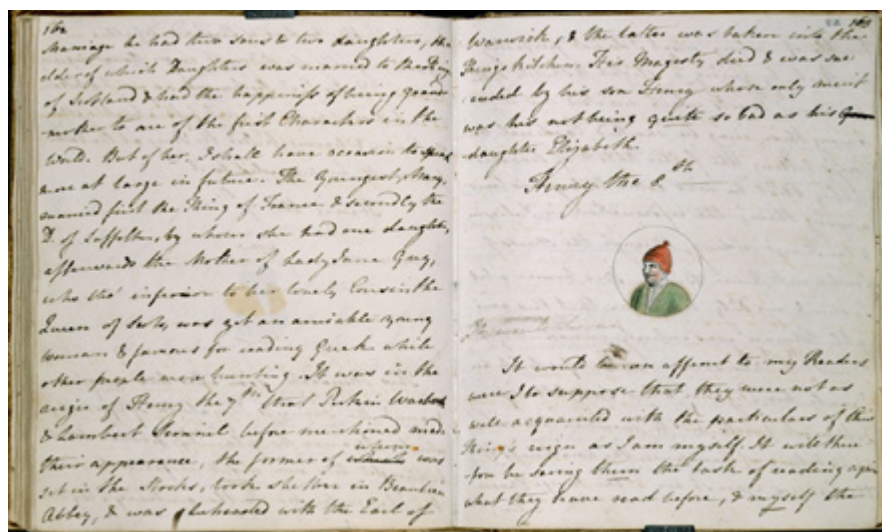 162
Marriage he had two sons & two daughters, the
elder of which Daughters was married to the King
of Scotland & had the happiness of being grand
-mother to one of the first Characters in the
World. But of her, I shall have occasion to speak
more at large in future. The Youngest, Mary,
married first the King of France & secondly the
D. of Suffolk, by whom she had one daughter,
afterwards the Mother of Lady Jane Grey,
who tho' inferior to her lovely Cousin the
Queen of Scots, was yet an amiable young
woman & famous for reading Greek while
other people were hunting. It was in the
reign of Henry the 7th that Perkin Warbeck
& Lambert Simnel before mentioned made
their appearance, the former of whom was
set in the Stocks, took shelter in Beaulieu
Abbey, & was beheaded with the Earl of
Warwick, & the latter was taken into the
Kings kitchen. His Majesty died & was suc
-ceeded by his son Henry whose only merit
was his not being quite so bad as his
daughter Elizabeth.
Henry the 8th
It would be an affront to my Readers
were I to suppose that they were not as
well acquainted with the particulars of this
King's reign as I am myself. It will there
-fore be saving them the task of reading again
what they have read before, & myself the